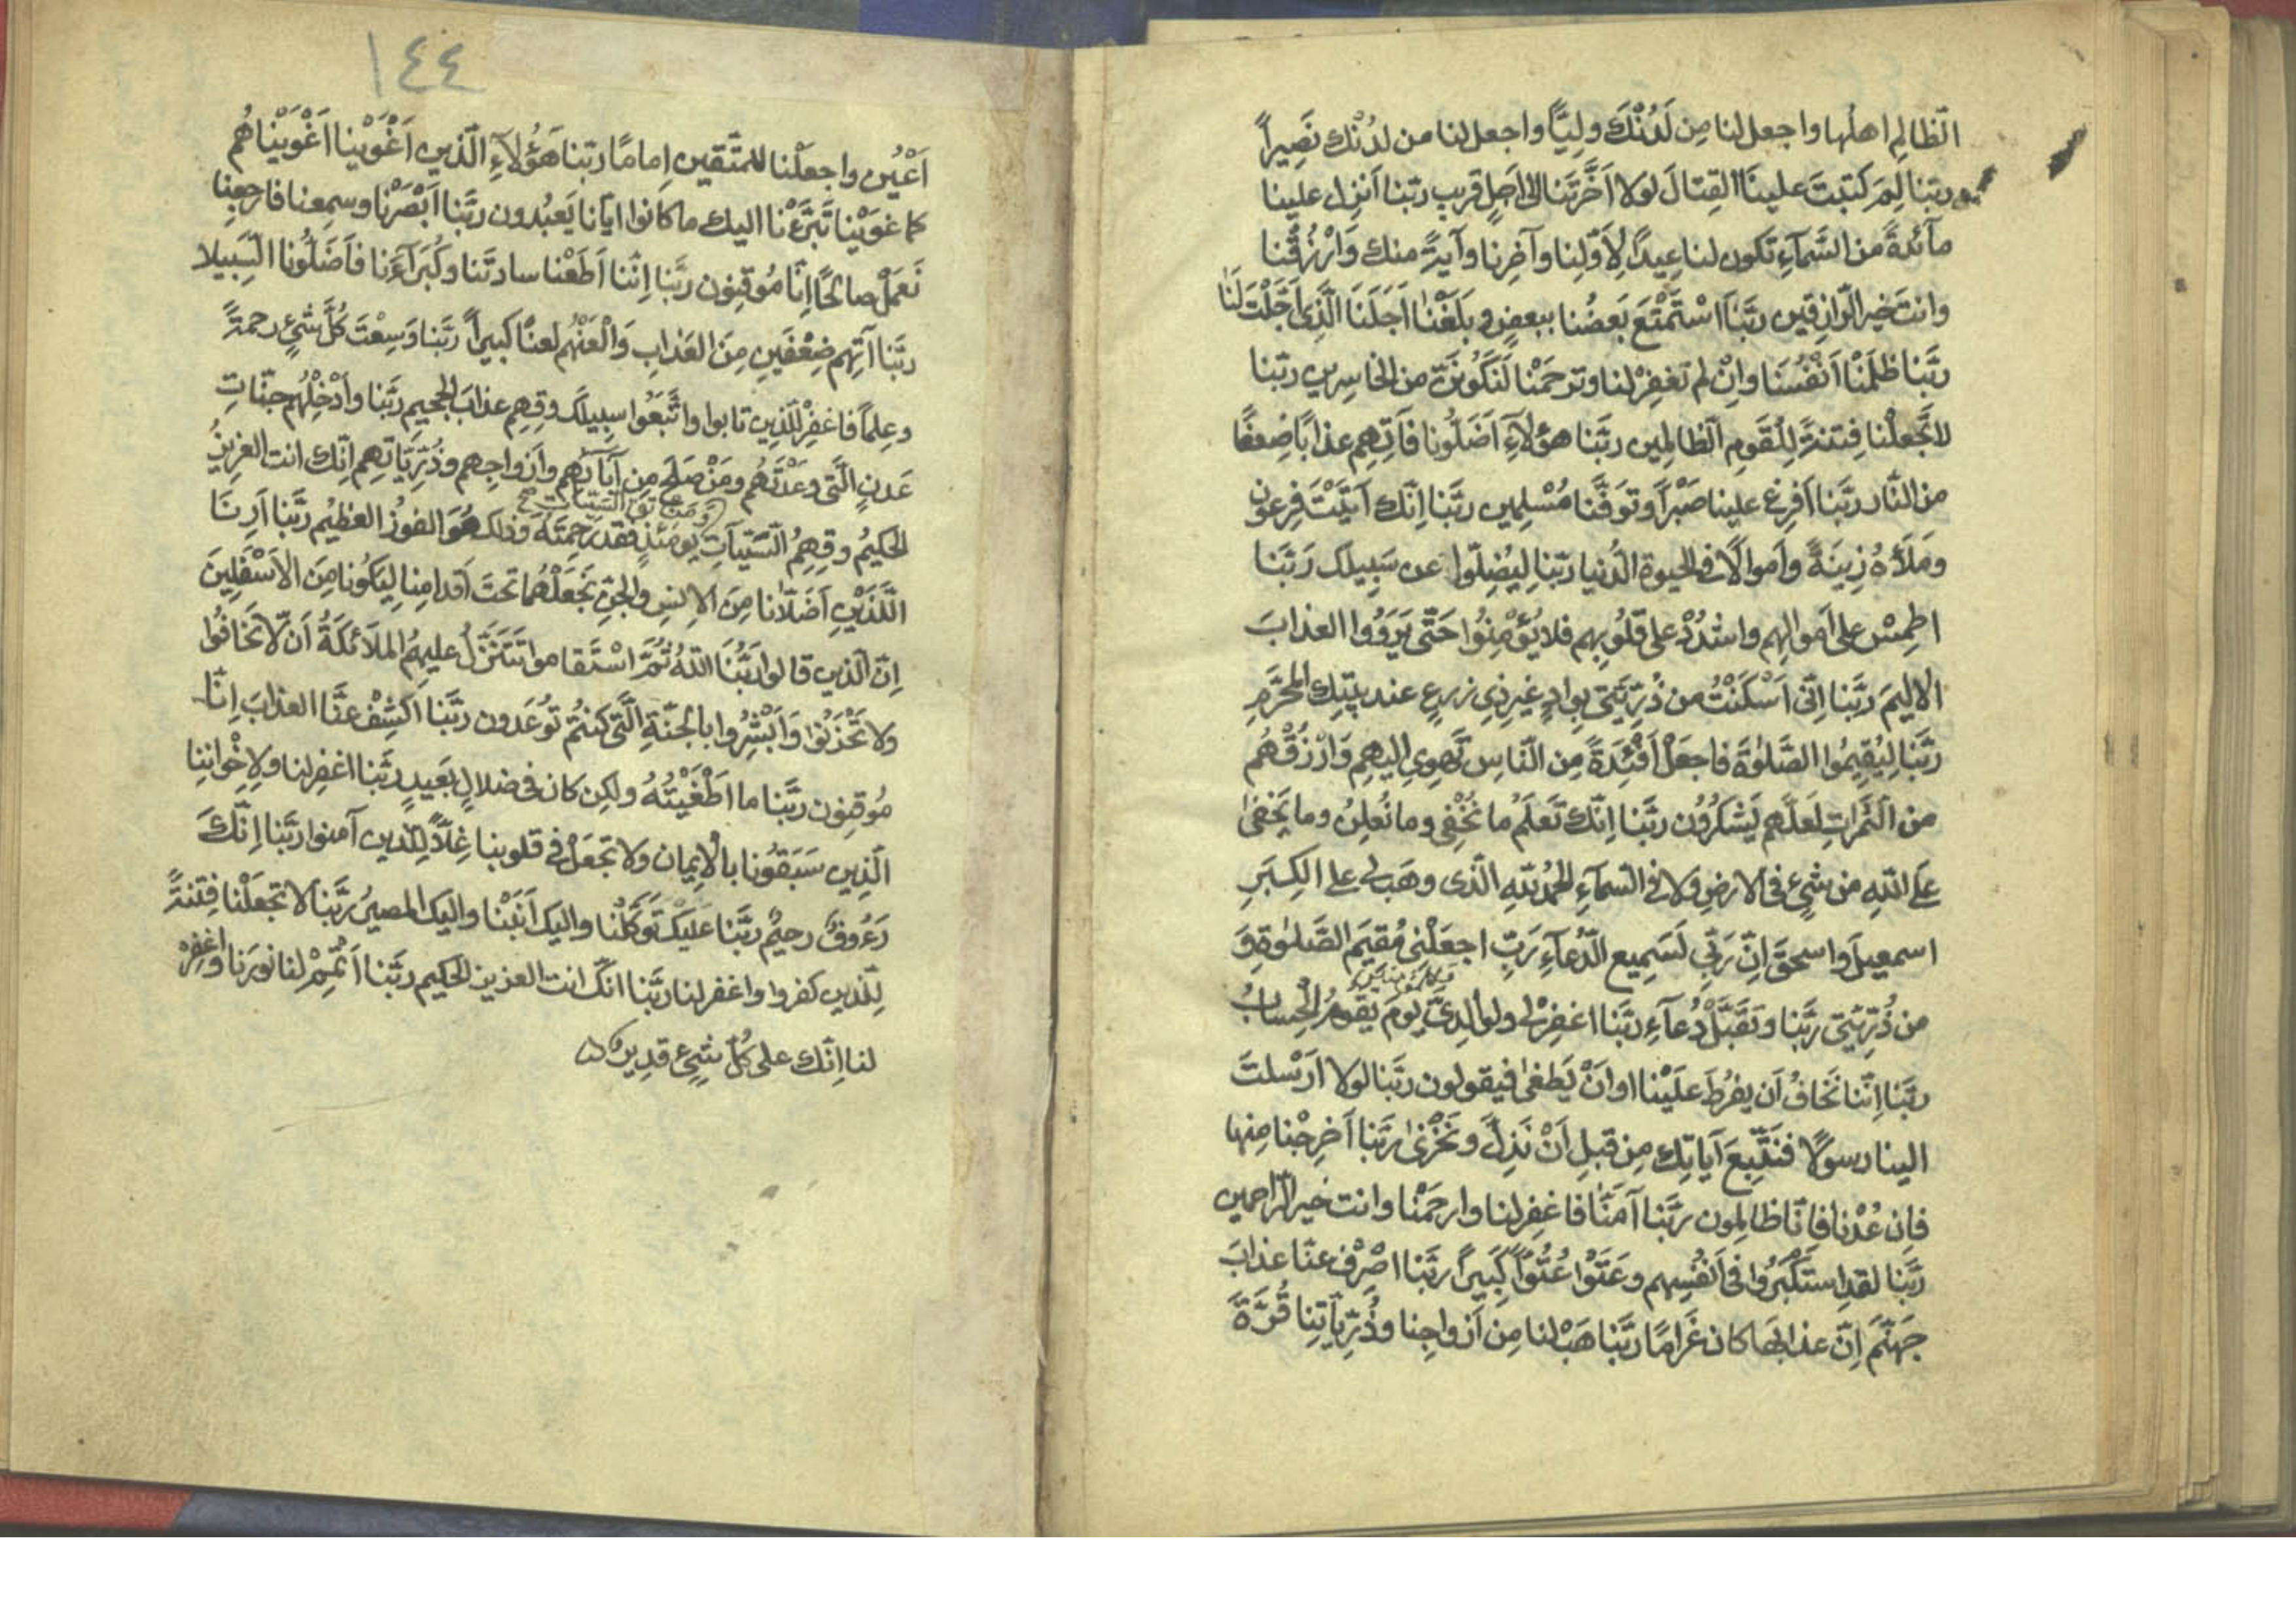 الظّالِمِ اهلُها واجعل لنا مِن لَدُنْكَ ولِيًّا واجعل لنا من لدُنْك نَصِيراً
ربّنا لِمَ كَتبتَ علينَا القِتالَ لولا اَخَّرتَنا الى اَجلٍ قريبٍ ربّنا اَنزِل علينا
مآئدةً من السَّمآءِ تكون لنا عِيداً لِاَوّلِنا وآخِرنا وآيةً منك وَارْزُقنا
وانتَ خير الرّازقين ربَّنَا اسْتَمْتَعَ بَعضُنا ببعضٍ وبلَغْنا اَجَلَنَا الَّذى اَجَّلْتَ لَنَا
ربَّنا ظلَمْنا اَنْفُسَنا واِنْ لم تغفِرْ لنا وترحَمْنا لَنَكُونَنَّ من الخاسِرين ربّنا
لا تجْعلْنا فِتنةً لِلْقَومِ الظالمِين ربَّنا هؤلآءِ اَضَلُّونا فآتِهِم عذابًا ضِعفًا
من النَّار ربَّنا اَفرِغ علينا صَبْراً وتوَفَّنا مُسْلِمين ربَّنا اِنّك آتَيْتَ فِرعون
ومَلَأهُ زِينَةً وأموالًا فى الحيوة الدُّنيا ربّنا لِيُضِلّوا عن سَبِيلك رَبَّنا
اطمِسْ على اَموالِهم واشدُدْ على قلُوبِهم فلا يُؤْمِنُوا حَتّى يَرَوُوا العذابَ
الاليمَ ربَّنا اِنّى اَسْكَنْتُ من ذُرّيَّتى بِوادٍ غيرِ ذِى زرعٍ عند بيتِك المُحرَّمِ
ربَّنا لِيُقِيمُوا الصَّلوٰةَ فاجعَلْ اَفْئِدَةً مِن النّاسِ تَهوِى اليهِم وَارْزُقْهُم
من الثَّمراتِ لعَلَّهم يَشكرُون ربَّنا اِنَّك تَعلَمُ ما نُخْفِى وما نُعلِنُ وما يَخفىٰ
على اللهِ من شَىْءٍ فى الارضِ ولا فى السّمآءِ الحمدُ للهِ الّذى وهَب لى على الكِبَرِ
اسمعيلَ واسحقَ اِنّ رَبّى لَسَمِيع الدُّعآءِ رَبِّ اجعَلْنى مُقيمَ الصَّلوٰةِ وَ
من ذُرِّيَّتى ربَّنا وتقَبَّلْ دُعآءِ ربَّنا اغفِرْ لى ولوالِدىَّ وللمؤمنين يومَ يقومُ الحِسابُ
ربَّنا اِنّنا نَخافُ اَن يفرُطَ عَلَيْنا او اَنْ يَطغىٰ فيقولون ربَّنا لولا ارْسلتَ
الينا رسولًا فنَتَّبِعَ آياتِك مِن قبلِ اَنْ نَذِلَّ ونَخْزىٰ ربَّنا اَخرِجْنا مِنها
فاِن عُدْنا فاِنّا ظالِمون ربَّنا آمَنّا فاغفِرلنا وارحَمْنا وانت خير الرّاحمين
ربَّنا لقدِ استَكْبَرُوا فى اَنفُسِهم وعَتَوْا عُتُوًّا كَبيراً ربَّنا اصْرِفْ عنّا عذابَ
جهنَّمَ اِنّ عذابَها كان غَرامًا ربَّنا هَبْ لنا مِن اَزواجِنا وذُرّيّآتِنا قُرّةَ
١٤٤
اَعْيُنٍ واجعَلْنا للمتّقين اِمامًا ربّنا هَؤُلآءِ الّذين اَغْوَيْنا اَغْوَيْناهُم
كما غوَيْنا تَبَرَّءْنا اليك ما كانوا ايّانا يَعبُدون ربَّنا اَبْصَرْنا وسمِعنا فارجِعنا
نَعمَلْ صالحًا اِنّا مُوقِنون ربَّنا اِنّنا اَطَعْنا سادتَنا وكُبَرآءَنا فاَضَلُّونا السَّبيلا
ربَّنا آتِهِم ضِعْفَينِ مِنَ العَذابِ وَالْعَنْهُم لعنًا كبيراً ربَّنا وَسِعْتَ كُلَّ شَىْءٍ رحمةً
وعِلماً فاغفِرْ للّذين تابوا واتَّبَعُوا سبيلَك وقِهِم عذابَ الجحيمِ ربَّنا واَدْخِلْهُم جنّاتِ
عَدنٍ الَّتى وعَدْتَهُم ومَنْ صَلَحَ مِن آبآئهِم واَزواجِهم وذُرّيّاتهِم اِنّك انت العزيزُ
الحكيمُ وقِهِمُ السَّيّئاتِ ومن تق السيئات صح يومَئذٍ فقد رَحِمتَه وذلك هُوَ الفوزُ العظيم ربَّنا اَرِنَا
اللّذَيْنِ اَضَلّانا مِنَ الاِنسِ والجِنّ نَجعَلْهُما تحتَ اَقدامِنا لِيَكُونا مِنَ الاَسْفَلِينَ
اِنّ الّذين قالوا ربُّنَا اللهُ ثُمَّ اسْتَقاموا تَتَنَزّلُ عليهِمُ الملآئكةُ اَن لا تخَافُوا
ولا تحْزَنُوا وَاَبْشِرُوا بالجنّةِ الَّتى كنتُم تُوعَدون ربَّنا اكشِفْ عنَّا العذابَ اِنّا
مُوقِنون ربَّنا ما اَطْغَيْتُهُ ولٰكِن كان فى ضلالٍ بَعيدٍ ربَّنا اغفِر لنا ولاِخْوانِنا
الَّذِين سَبَقُونا بالاِيمان ولا تجعَلْ فى قلوبنا غِلًّا لِلّذين آمنوا ربَّنا اِنّكَ
رَءُوفٌ رحيمٌ ربَّنا عَليْكَ تَوَكَّلْنا واليك اَنَبْنا واليك المصيرُ ربَّنا لا تجْعَلْنا فِتنةً
لِلّذين كفروا واغفر لنا ربَّنا انّك انت العزيز الحكيم ربَّنا اَتْمِمْ لنا نورَنا واغفِرْ
لنا اِنّك على كُلّ شَىْءٍ قدِير